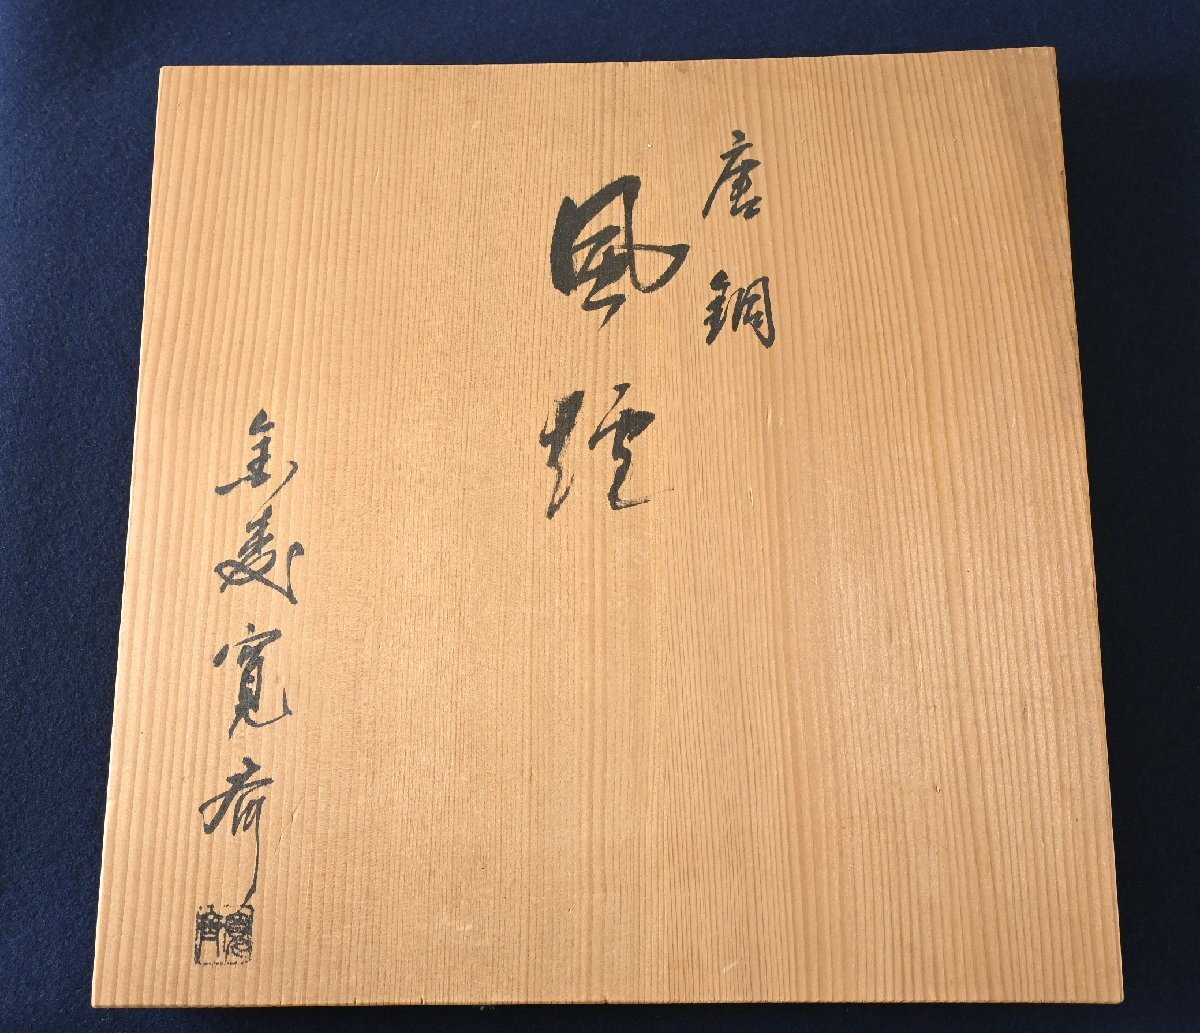 唐銅
風炉
金寿寛斎
寛斎